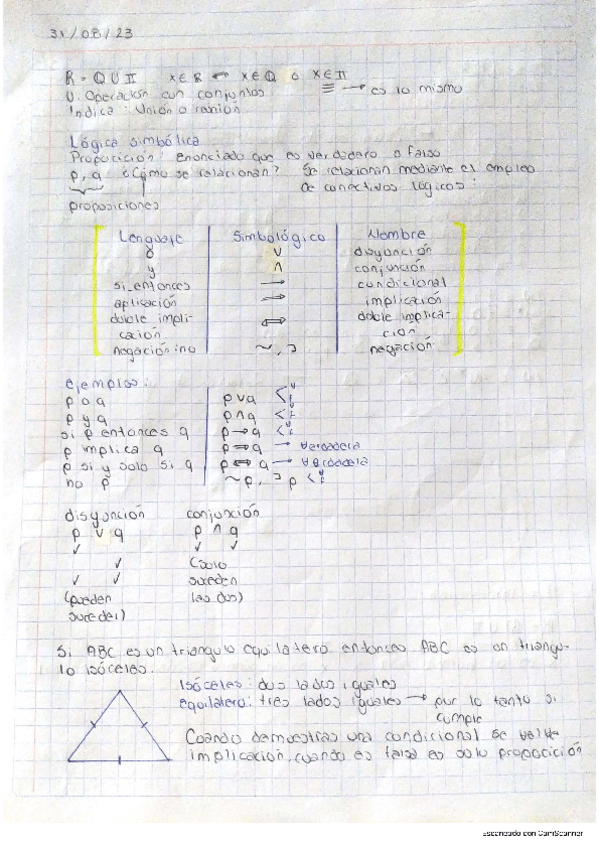 31/08/23
R = Q U II x ∈ R ↔ x ∈ Q o x ∈ II
U. Operación con conjuntos ≡ → es lo mismo
Indica: Unión o reunión
Lógica simbólica
Proposición: enunciado que es verdadero o falso
p, q ¿Cómo se relacionan? Se relacionan mediante el empleo
de conectivos lógicos:
proposiciones
Lenguaje Simbológico Nombre
o ∨ disyunción
y ∧ conjunción
si, entonces → condicional
aplicación ⇒ implicación
doble impli- ⇔ doble implica-
cación ción
negación: no ~, ¬ negación
ejemplos:
p o q p ∨ q < v f
p y q p ∧ q < v f
si p entonces q p → q < v f
p implica q p ⇒ q → verdadera
p si y solo si q p ⇔ q → verdadera
no p ~p, ¬p < v f
disyunción conjunción
p ∨ q p ∧ q
✓ ✓ ✓
✓ (solo
✓ ✓ suceden
(pueden las dos)
suceder)
Si ABC es un triangulo equilatero entonces ABC es un triangu-
lo isósceles.
Isóceles: dos lados iguales
equilatero: tres lados iguales → por lo tanto si
cumple
Cuando demuestras una condicional se vuelve
implicación, cuando es falsa es solo proposición
Escaneado con CamScanner